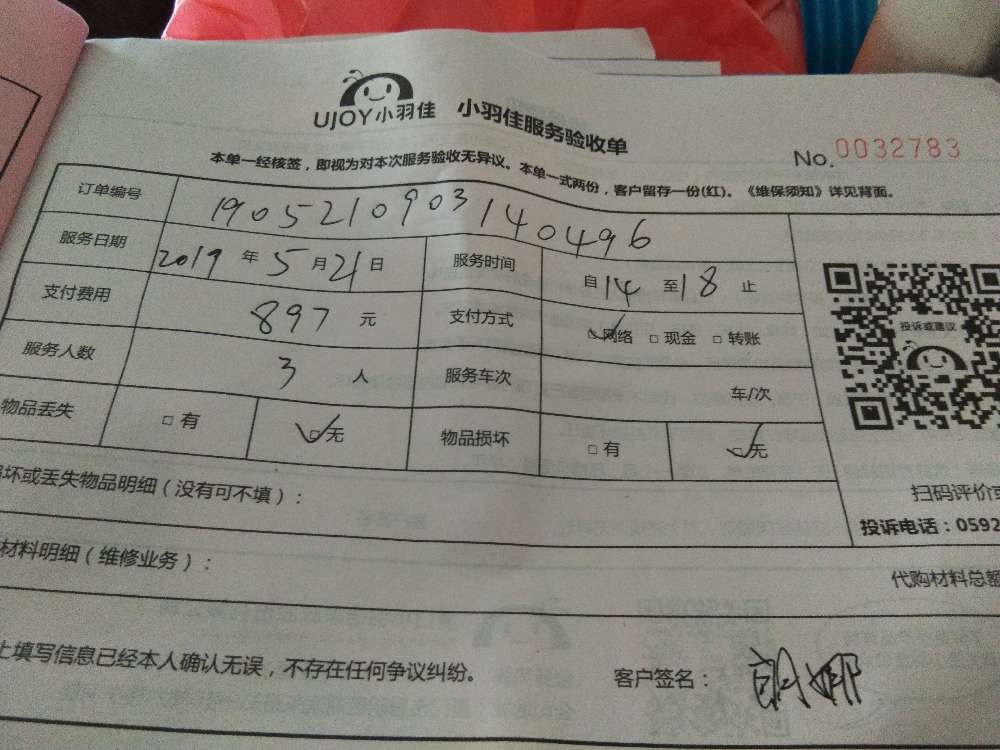 UJOY小羽佳 小羽佳服务验收单
No.0032783
本单一经核签，即视为对本次服务验收无异议。本单一式两份，客户留存一份(红)。《维保须知》详见背面。
订单编号 190521090314 0496
服务日期 2019 年 5 月 21 日 服务时间 自 14 至 18 止
支付费用 897 元 支付方式 ☑网络 □现金 □转账
服务人数 3 人 服务车次 车/次
物品丢失 □有 ☑无 物品损坏 □有 ☑无
投诉或建议
扫码评价
投诉电话：0592
坏或丢失物品明细（没有可不填）：
材料明细（维修业务）：
代购材料总额
上填写信息已经本人确认无误，不存在任何争议纠纷。
客户签名：